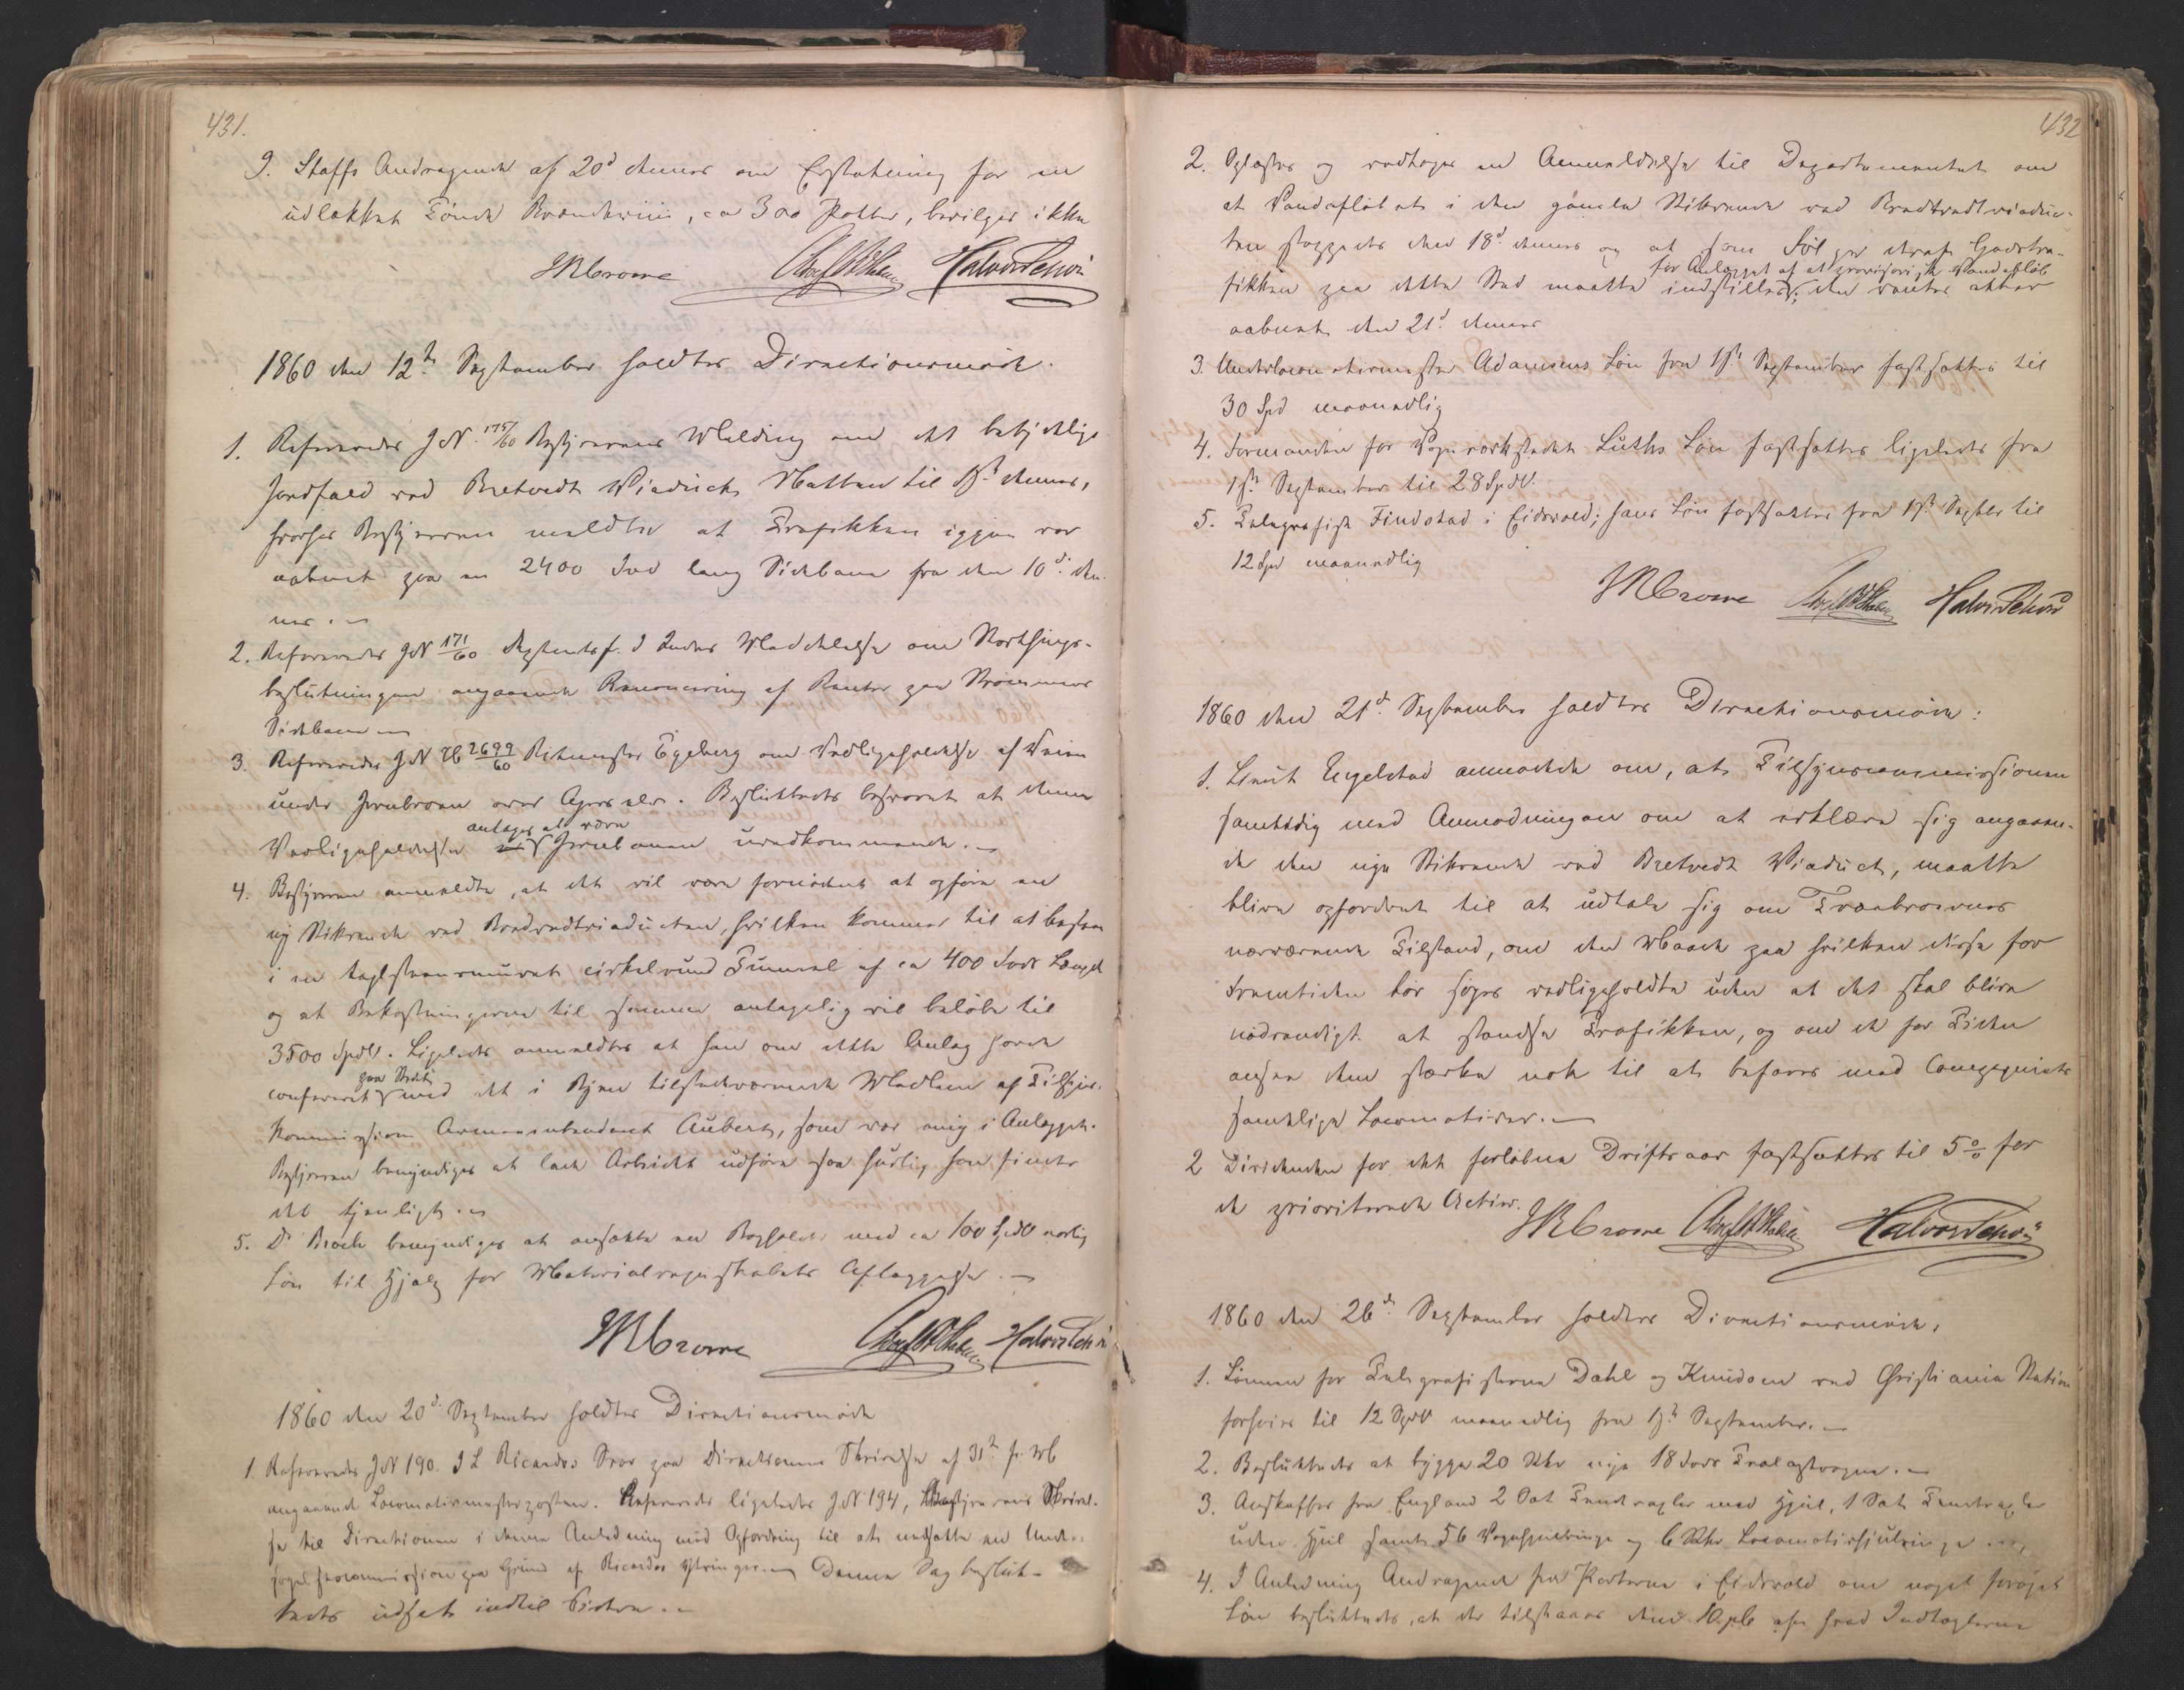 431.
9. Staffs Andragende af 20d dennes om Erstatning for en
udlekket Tønde Brændeviin, ca 300 Potter, bevilges ikke
JRCrowe Halvor Schou
1860 den 12te September holdtes Directionsmøde.
1. Refereredes JN. 175/60 Bestyrerens Melding om det betydelige
Jordfald ved Bretvedt Viaduct Natten til 1ste dennes,
hvorhos Bestyreren meldte at Trafikken igjen var
aabnet paa en 2400 Fod lang Sidebane fra den 10de den-
nes. –
2. Refereredes JN 171/60 Departemtf. d Indres Meddelelse om Storthings-
beslutningen angaaende Renoncering af Renter paa Strømmens
Sidebane –
3. Refereredes JN 2699/60 Ritmester Egeberg om Vedligeholdelse af Veien
under Jernbroen over Agers elv. Besluttedes besvaret at denne
antages at være
Vedligeholdelse Jernbanen uvedkommende. –
4. Bestyreren anmeldte, at det vil være fornødent at opføre en
ny Stikrende ved Bredvedtviaducten, hvilken kommer til at bestaa
i en teglsteensmuret cirkelrund Tunnel af ca 400 Fods Længde
og at Bekostningerne til samme antagelig vil beløbe til
3500 Spdlr. Ligeledes anmeldtes at han om dette Anlæg havde
paa Stedet
confereret med det i Byen tilstedeværende Medlem af Tilsyns-
kommission Armeeintendant Aubert, som var enig i Anlægget.
Bestyreren bemyndiges at lade Arbeidet udføre saa hurtig han finder
det tjenligt. –
5. Dr Broch bemyndiges at ansætte en Bogholder med ca 100 Spdlr aarlig
Løn til Hjælp for Materialregnskabets Aflæggelse. –
JRCrowe Halvor Schou
1860 den 20de September holdtes Directionsmøde
1. Refereredes JN 190. J L Ricardos Svar paa Directionens Skrivelse af 31te f. M
angaaende Locomotivmesterposten. Refereredes ligeledes JN 194, Bestyrerens Skrivel-
se til Directionen i denne Anledning med Opfordring til at nedsætte en Under-
søgelsescommission paa Grund af Ricardos Ytringer. – Denne Sag beslut-
tedes udsat indtil videre. –
432
2. Oplæstes og vedtoges en Anmeldelse til Departementet om
at Vandafløbet i den gamle Stikrende ved Bredvedtviaduc-
ten stoppedes den 18de dennes og at som Følge deraf Godstra-
for Anlægget af et provisorisk Vandafløb
fikken paa dette Sted maatte indstilles; den ventes atter
aabnet den 21de dennes
3. Underlocomotivmester Adamsens Løn fra 1ste September fastsættes til
30 Spd maanedlig
4. Formanden for Vognværkstedet Luths Løn fastsættes ligeledes fra
1ste September til 28 Spdlr.
5. Telegrafist Findstad i Eidsvold; hans Løn fastsættes fra 1ste Septbr til
12 Spd maanedlig
JRCrowe Halvor Schou
1860 den 21de September holdtes Directionsmøde:
1. Lieut Engelstad anmodede om, at Tilsynscommissionen
samtidig med Anmodningen om at erklære sig angaaen-
de den nye Stikrende ved Bretvedt Viaduct, maatte
blive opfordret til at udtale sig om Træbroernes
nærværende Tilstand, om den Maade paa hvilken disse for
Fremtiden bør søges vedligeholdte uden at det skal blive
nødvendigt at standse Trafikken, og om de for Tiden
ansee dem stærke nok til at befares med Compagniets
samtlige Locomotiver. –
2 Dividenden for det forløbne Driftsaar fastsættes til 5% for
de prioriterede Actier.
JRCrowe Halvor Schou
1860 den 26de September holdtes Directionsmøde,
1. Lønnen for Telegrafisterne Dahl og Knudsen ved Christiania Station
forhøies til 12 Spdlr maanedlig fra 1ste September. –
2. Besluttedes at bygge 20 Stkr nye 18 Fods Trælastvogne. –
3. Anskaffes fra England 2 Sæt Tenderaxler med Hjul, 1 Sæt Tenderaxler
uden Hjul samt 56 Vognhjulringe og 6 Stkr Locomotivhjulringe –
4. I Anledning Andragende fra Porterne i Eidsvold om noget forøget
Løn besluttedes, at der tilstaaes dem 10 pCt af hvad Indtægterne